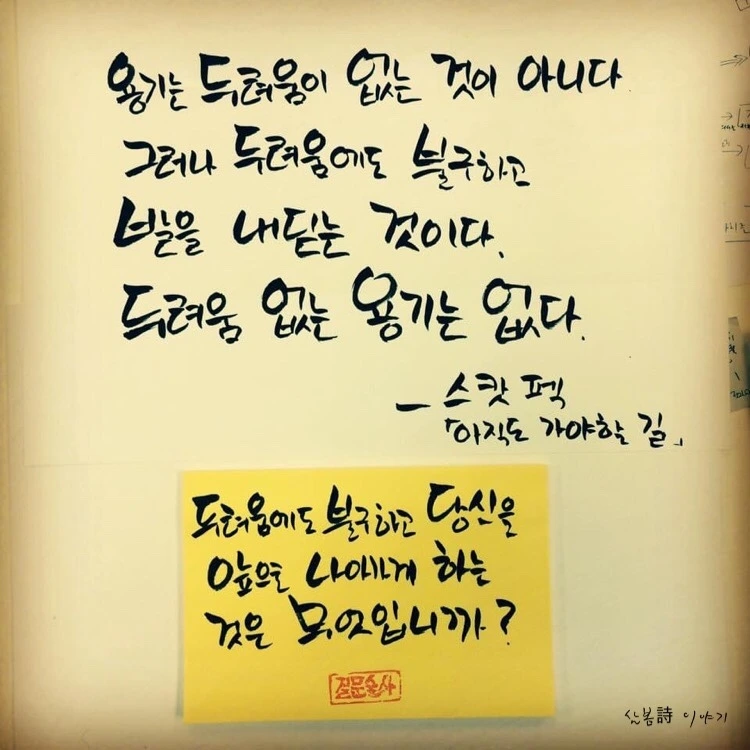 용기는 두려움이 없는 것이 아니다
그러나 두려움에도 불구하고
발을 내딛는 것이다.
두려움 없는 용기는 없다.
- 스캇 펙
「아직도 가야할 길」
두려움에도 불구하고 당신을
앞으로 나아가게 하는
것은 무엇입니까?
질문술사
삶봄詩 이야기